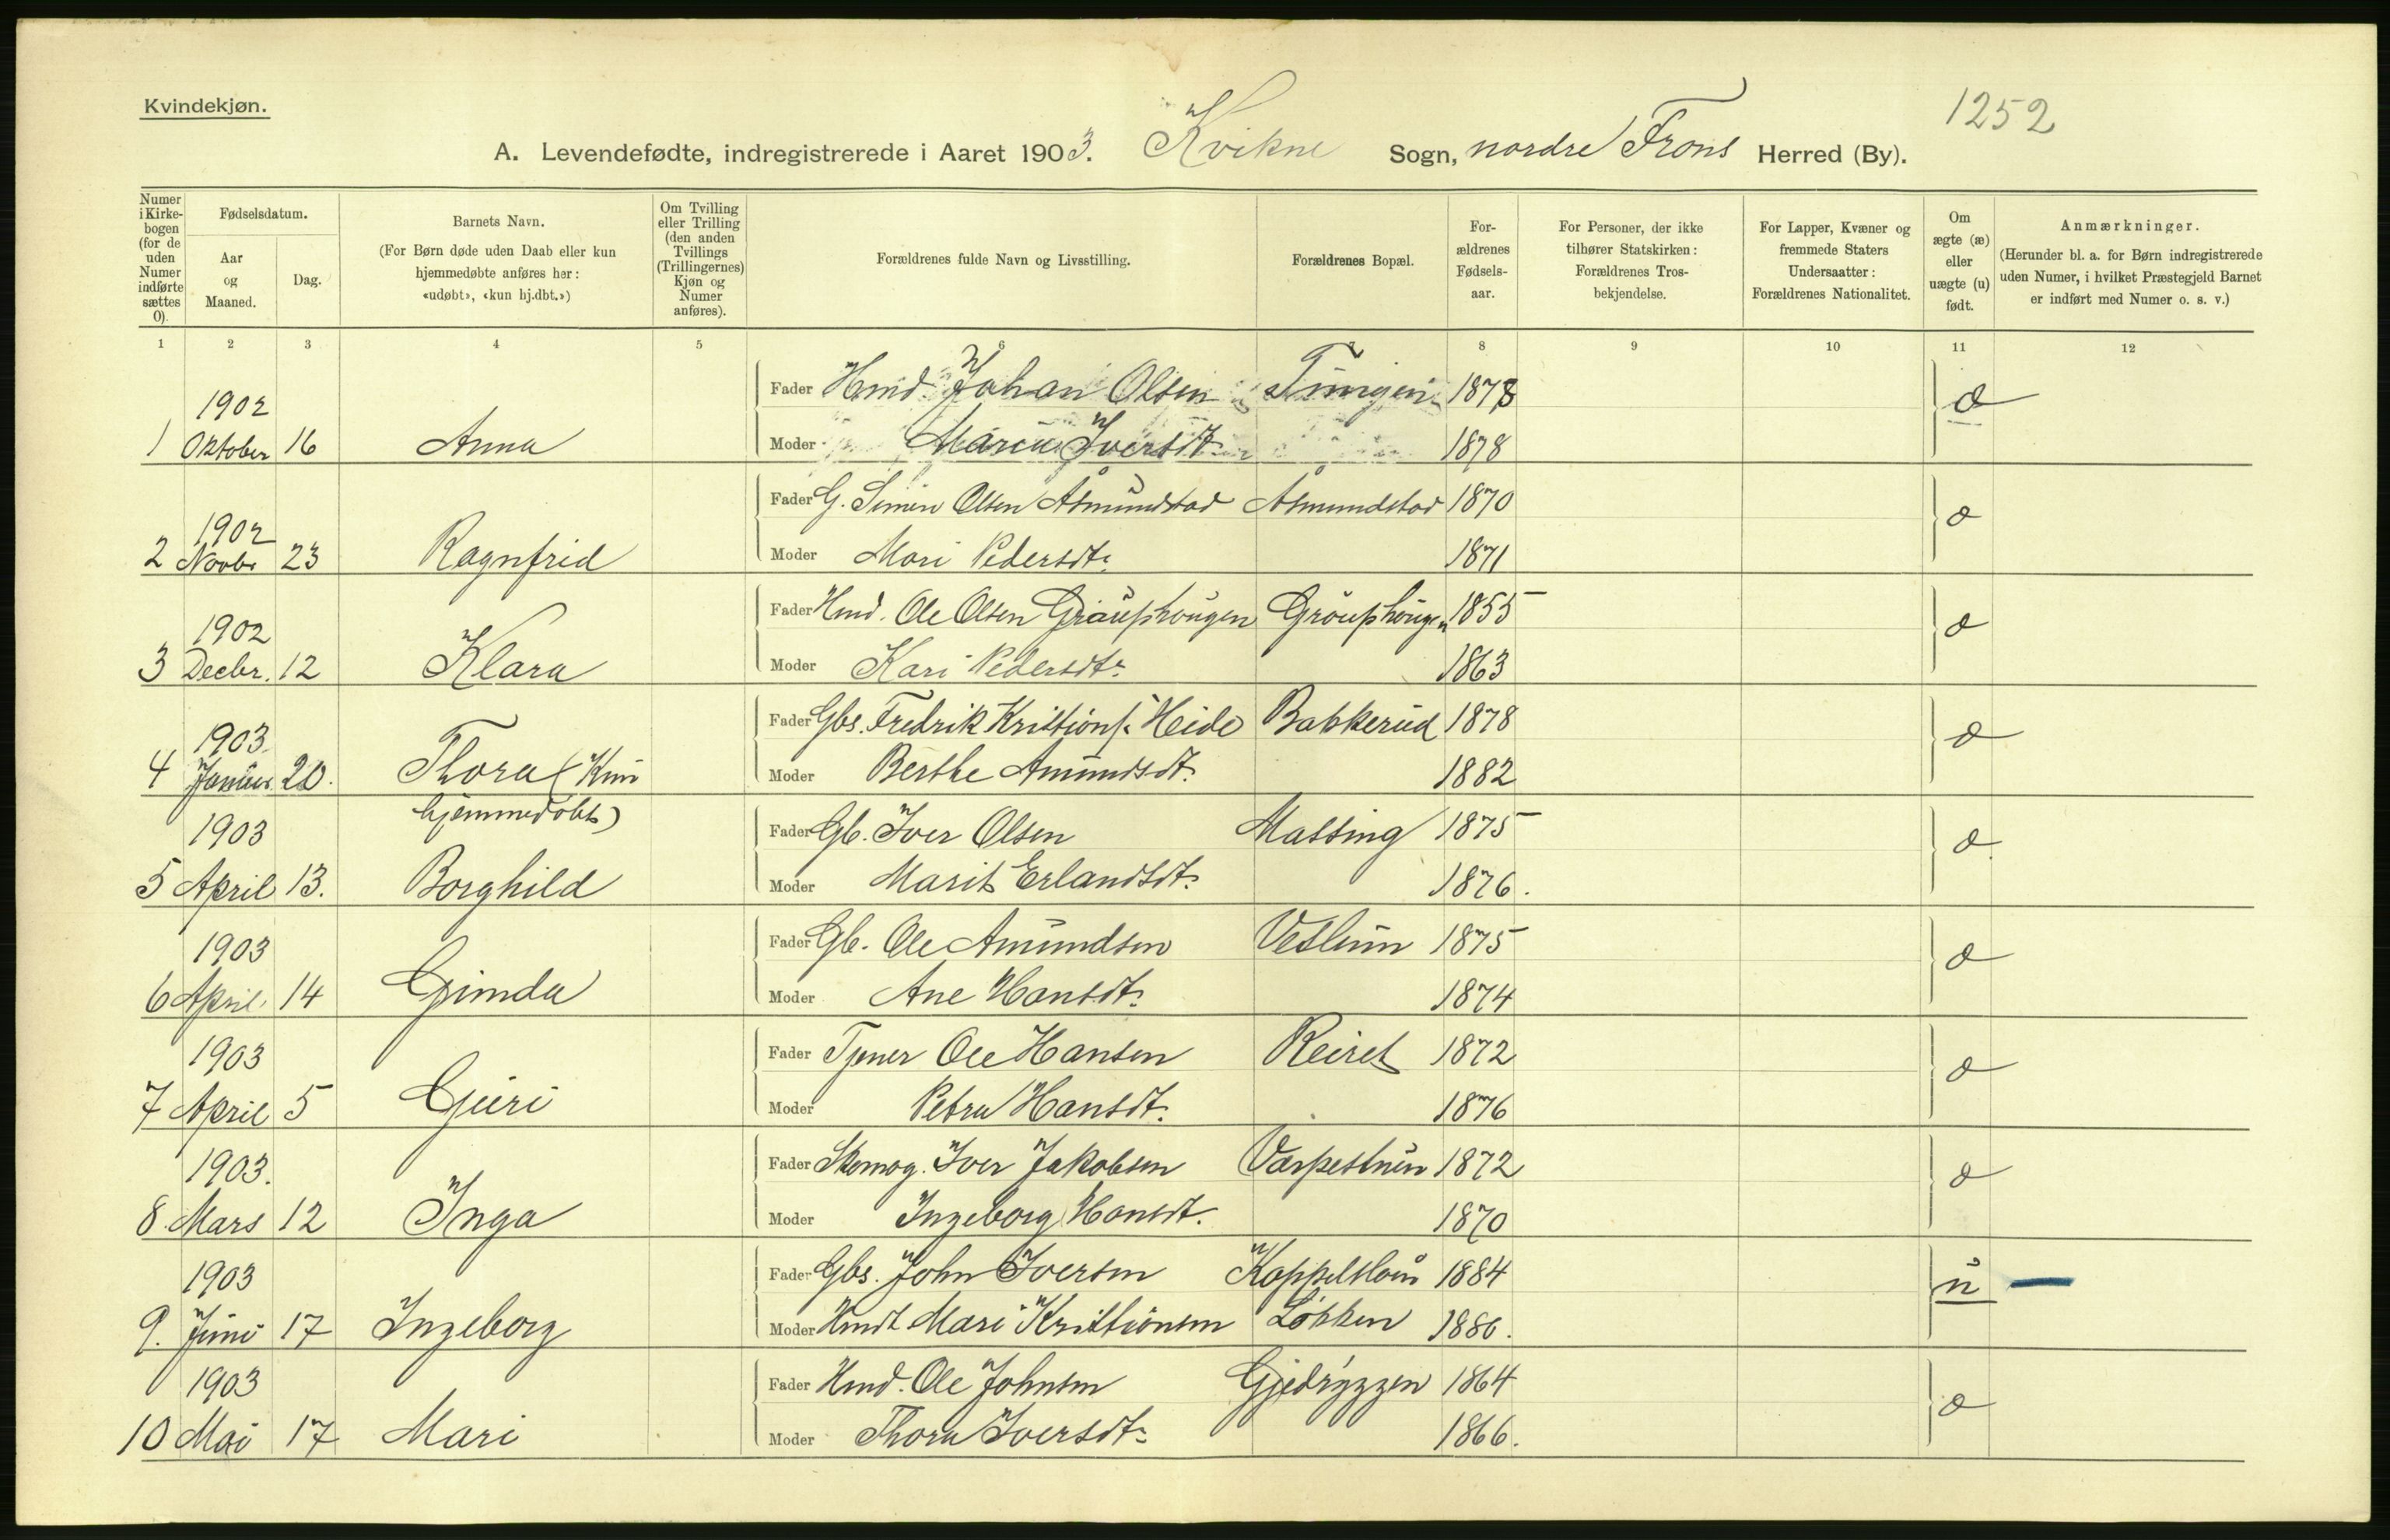 Kvindekjøn.
1252
A. Levendefødte, indregistrerede i Aaret 1903. Kvikne Sogn, nordre Frons Herred (By).
Numer i Kirkebogen (for de uden Numer indførte sættes 0).
Fødselsdatum.
Aar og Maaned.
Dag.
Barnets Navn.
(For Børn døde uden Daab eller kun hjemmedøbte anføres her: «udøbt», «kun hj.dbt.»)
Om Tvilling eller Trilling (den anden Tvillings (Trillingernes) Kjøn og Numer anføres).
Forældrenes fulde Navn og Livsstilling.
Forældrenes Bopæl.
For-ældrenes Fødsels-aar.
For Personer, der ikke tilhører Statskirken: Forældrenes Tros-bekjendelse.
For Lapper, Kvæner og fremmede Staters Undersaatter: Forældrenes Nationalitet.
Om ægte (æ) eller uægte (u) født.
Anmærkninger.
(Herunder bl. a. for Børn indregistrerede uden Numer, i hvilket Præstegjeld Barnet er indført med Numer o. s. v.)
1 2 3 4 5 6 7 8 9 10 11 12
Fader Hmd. Johan Olsen 1878 æ
1902
1 Oktober 16 Anna Moder Maria Iversdt. 1878
Fader G. Simen Olsen Åsmundstad Åsmundstad 1870 æ
1902
2 Novbr 23 Ragnfrid Moder Mari Pedersdt. 1871
Fader Hmd. Ole Olsen 1855 æ
1902
3 Decbr. 12 Klara Moder Kari Pedersdt. 1863
Fader Gbs. Fredrik Kristians. Heide Bakkerud 1878 æ
1903
4 Januar 20. Thora (Kun Moder Berthe Amundsdt. 1882
hjemmedøbt)
1903 Fader Gb. Iver Olsen Massing 1875 æ
5 April 13. Borghild Moder Marit Erlandsdt. 1876.
1903 Fader Gb. Ole Amundsen Veslum 1875 æ
6 April 14 Gimda Moder Ane Hansdt. 1874
1903 Fader Tjener Ole Hansen Reiret 1872 æ
7 April 5 Guri Moder Petra Hansdt. 1876
1903. Fader Skomag. Iver Jakobsen 1872 æ
8. Mars 12 Inga Moder Ingeborg Hansdt. 1870
1903 Fader Gbs. John Iversen 1884 u
9. Juni 17 Ingeborg Moder Hmdt Mari Kristiansen Løkken 1886.
1903 Fader Hmd. Ole Johnsen Gjedryggen 1864 æ
10 Mai 17 Mari Moder Thora Iversdt. 1866.